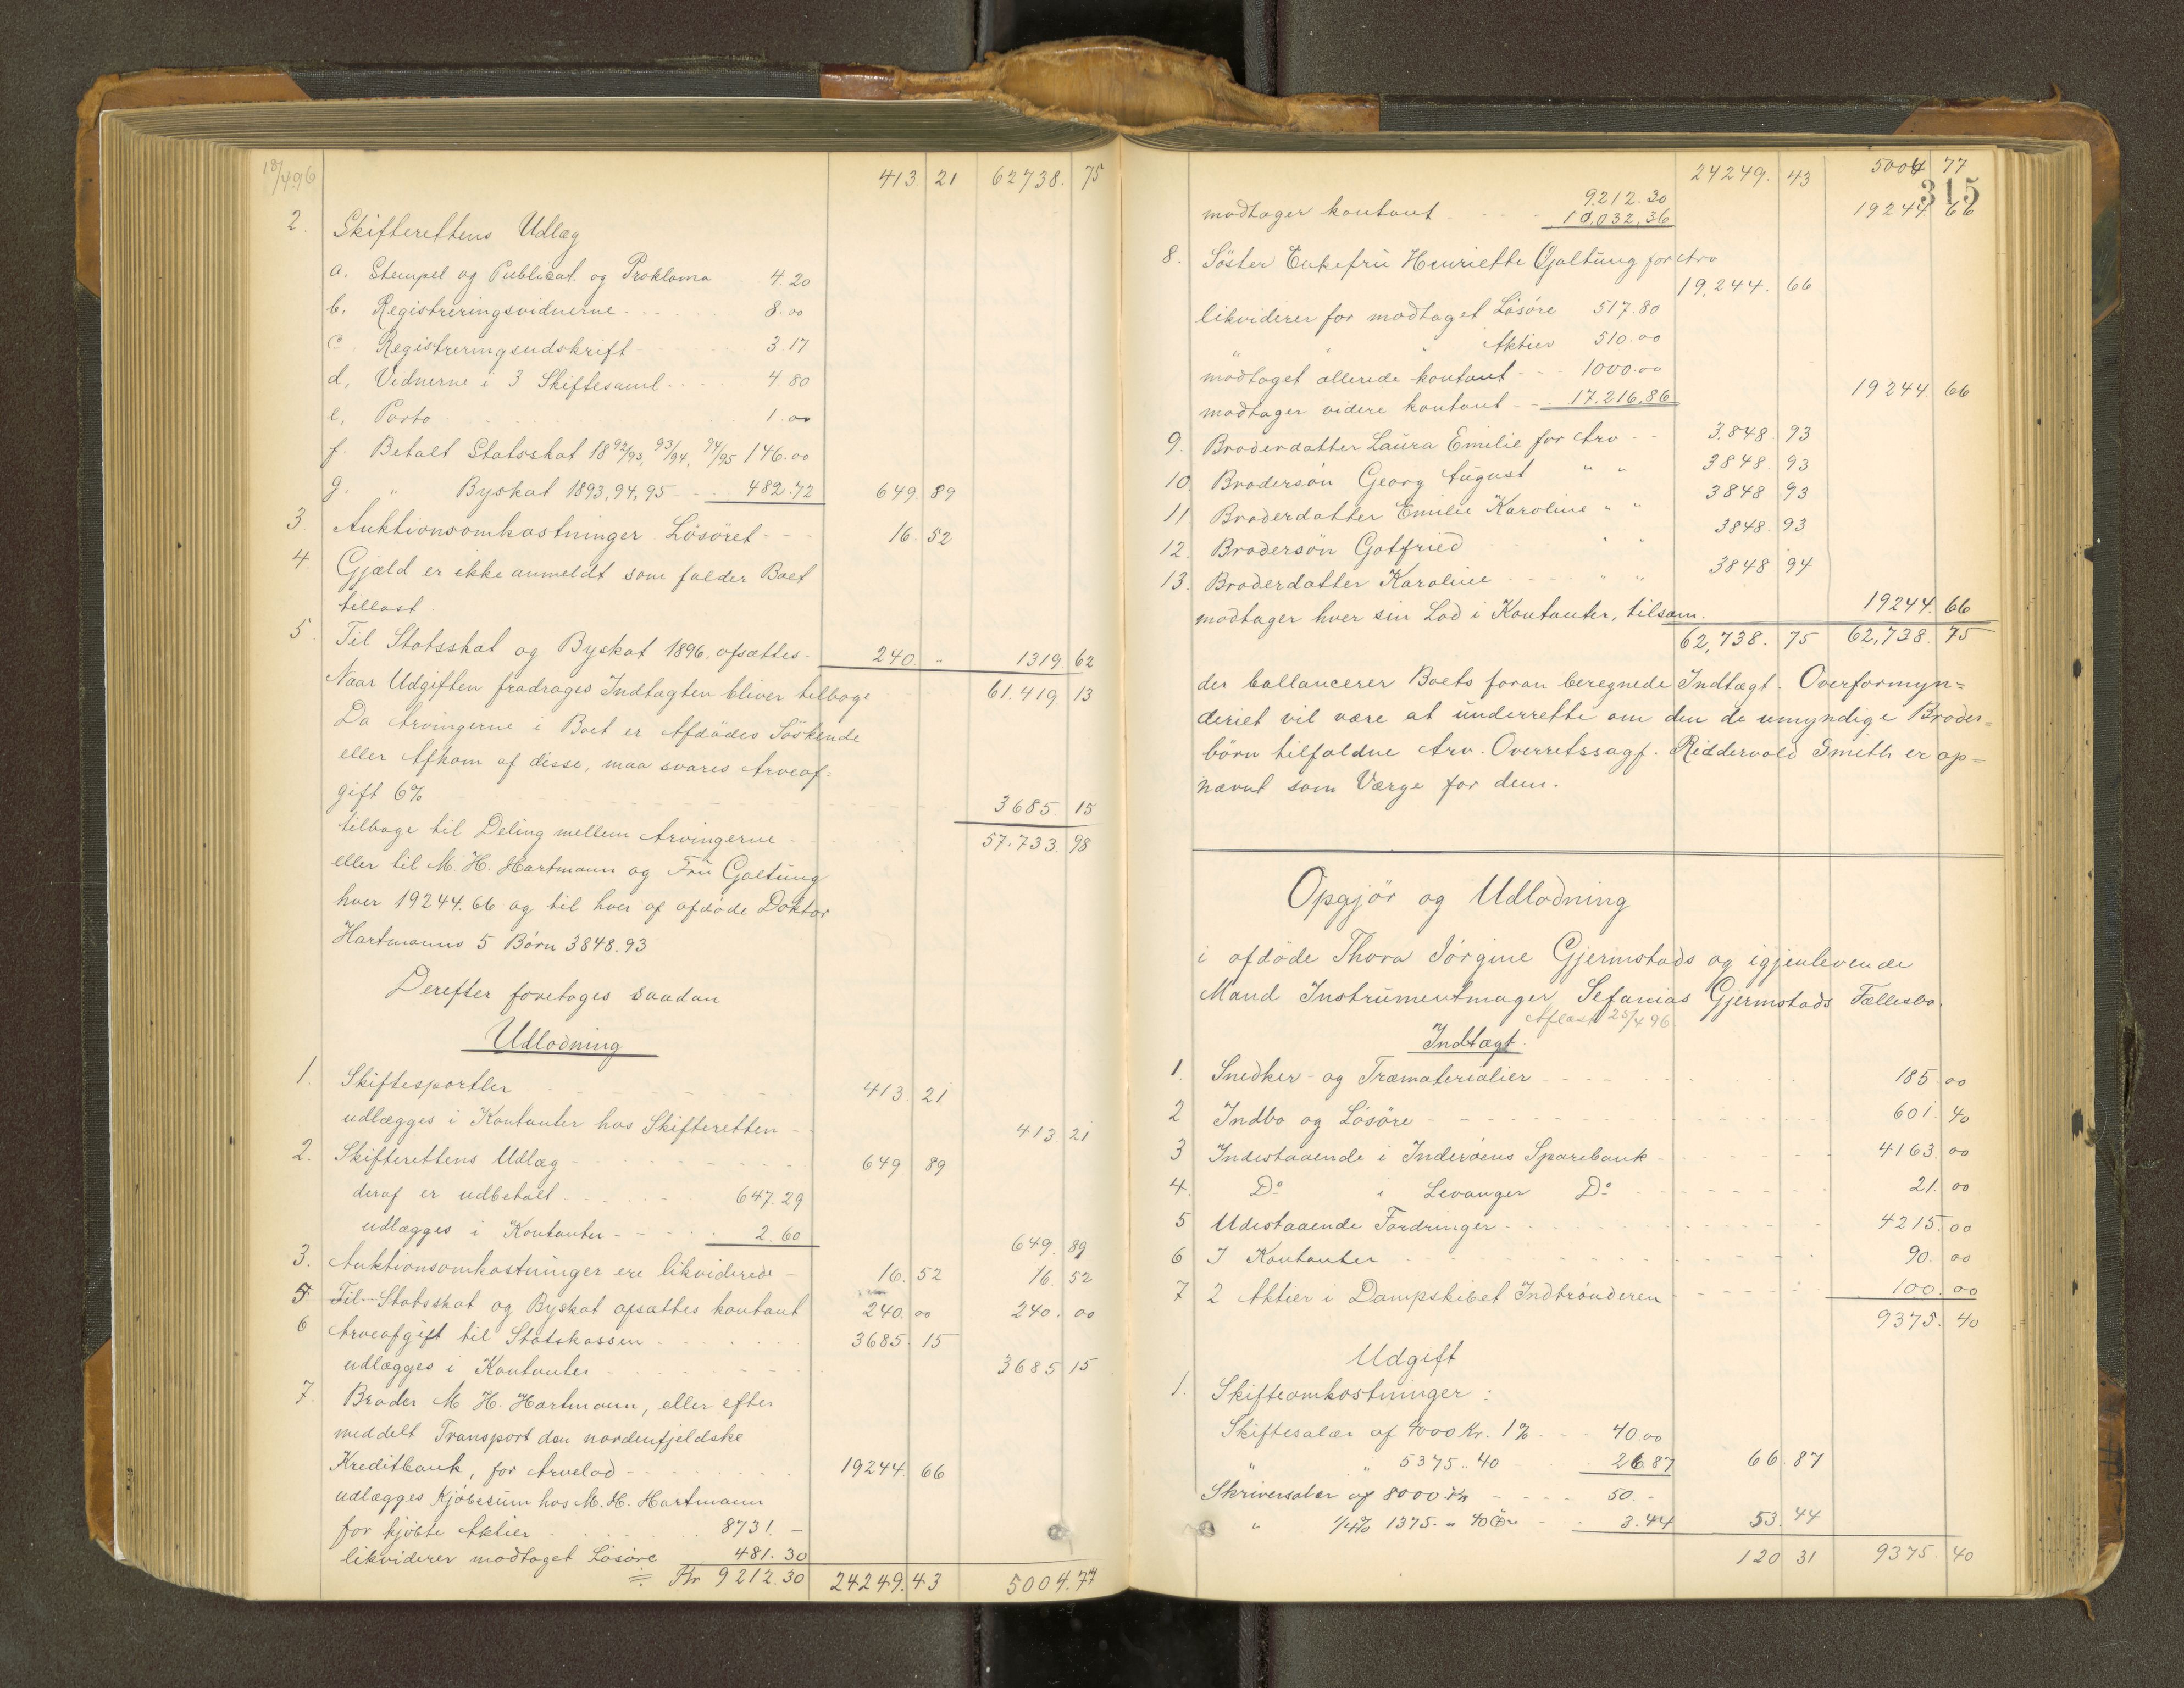 18/4 96 413. 21 62738. 75
2. Skifterettens Udlæg
a. Stempel og Publicat. og Proklama 4.20
b. Registreringsvidnerne 8.00
c. Registreringsudskrift 3.17
d, Vidnerne i 3 Skiftesaml. 4.80
e, Porto 1.00
f. Betalt Statsskat 18 92/93, 93/94, 94/95 146.00
g. " Byskat 1893, 94, 95 482.72 649. 89
3. Auktionsomkostninger Løsöret 16. 52
4. Gjæld er ikke anmeldt som falder Boet
tillast.
5. Til Statsskat og Byskat 1896. afsættes 240 " 1319. 62
Naar Udgiften fradrages Indtægten bliver tilbage 61.419 13
Da Arvingerne i Boet er Afdødes Söskende
eller Afkom af disse, maa svares Arveaf=
gift 6% 3685. 15
tilbage til Deling mellem Arvingerne 57.733. 98
eller til M. H. Hartmann og Frü Galtüng
hver 19244.66 og til hver af afdøde Doktor
Hartmanns 5 Børn 3848.93
Derefter foretages saadan
Udlodning
1. Skiftesportler 413. 21
udlægges i Kontanter hos Skifteretten 413. 21
2. Skifterettens Udlæg 649. 89
deraf er udbetalt 647.29
udlægges i Kontanter 2.60 649. 89
3. Auktionsomkostninger ere likviderede 16. 52 16. 52
5 Til Statsskat og Byskat afsættes kontant 240. 00 240. 00
6 Arveafgift til Statskassen 3685. 15
udlægges i Kontanter 3685 15
7. Broder M. H. Hartmann, eller efter
meddelt Transport den nordenfjeldske
Kreditbank, for Arvelod 19244. 66
udlægges Kjøbesum hos M. H. Hartmann
for kjöbte Aktier 8731. –
likviderer modtaget Løsøre 481.30
÷ Kr 9212.30 24249. 43 5004. 77
24249. 43 5004 77
315
9.212.30
modtager kontant 10,032,36 19244. 66
8. Söster Enkefrü Henriette Galtüng for Arv
19,244. 66
likviderer for modtaget Løsøre 517.80
" " " Aktier 510.00
modtaget allerede kontant 1000.00
modtager videre kontant 17.216,86 19244. 66
9. Broderdatter Laura Emilie for Arv 3.848. 93
10. Brodersön Georg August " " 3848. 93
11. Broderdatter Emilie Karoline " " 3848 93
12. Brodersön Gotfried " " 3848. 93
13. Broderdatter Karoline " " 3848 94
modtager hver sin Lod i Kontanter, tilsam. 19244. 66
62,738. 75 62,738. 75
der ballancerer Boets foran beregnede Indtægt. Overformyn=
deriet vil være at ünderrette om den de umyndige Broder=
börn tilfaldne Arv. Overretssagf. Riddervold Smith er op=
nævnt som Værge for dem.
Opgjör og Udlodning
i afdöde Thora Jørgine Gjermstads og igjenlevende
Mand Instrümentmager Sefanias Gjermstads Fællesbo.
Aflæst 25/4 96.
Indtægt.
1. Snedker- og Træmaterialier 185. 00
2 Indbo og Løsøre 601. 40
3 Indestaaende i Inderøens Sparebank 4163. 00
4. Do i Levanger Do 21. 00
5 Udestaaende Fordringer 4215. 00
6 I Kontanter 90. 00
7 2 Aktier i Dampskibet Indtrönderen 100. 00
9375. 40
Udgift
1. Skifteomkostninger:
Skiftesalær af 4000 Kr. 1% 40.00
" " 5375.. 40 26.87 66. 87
Skriversalær af 8000 Kr 50. -
" 1/4% 1375. " 40 3.44 53. 44
120 31 9375. 40